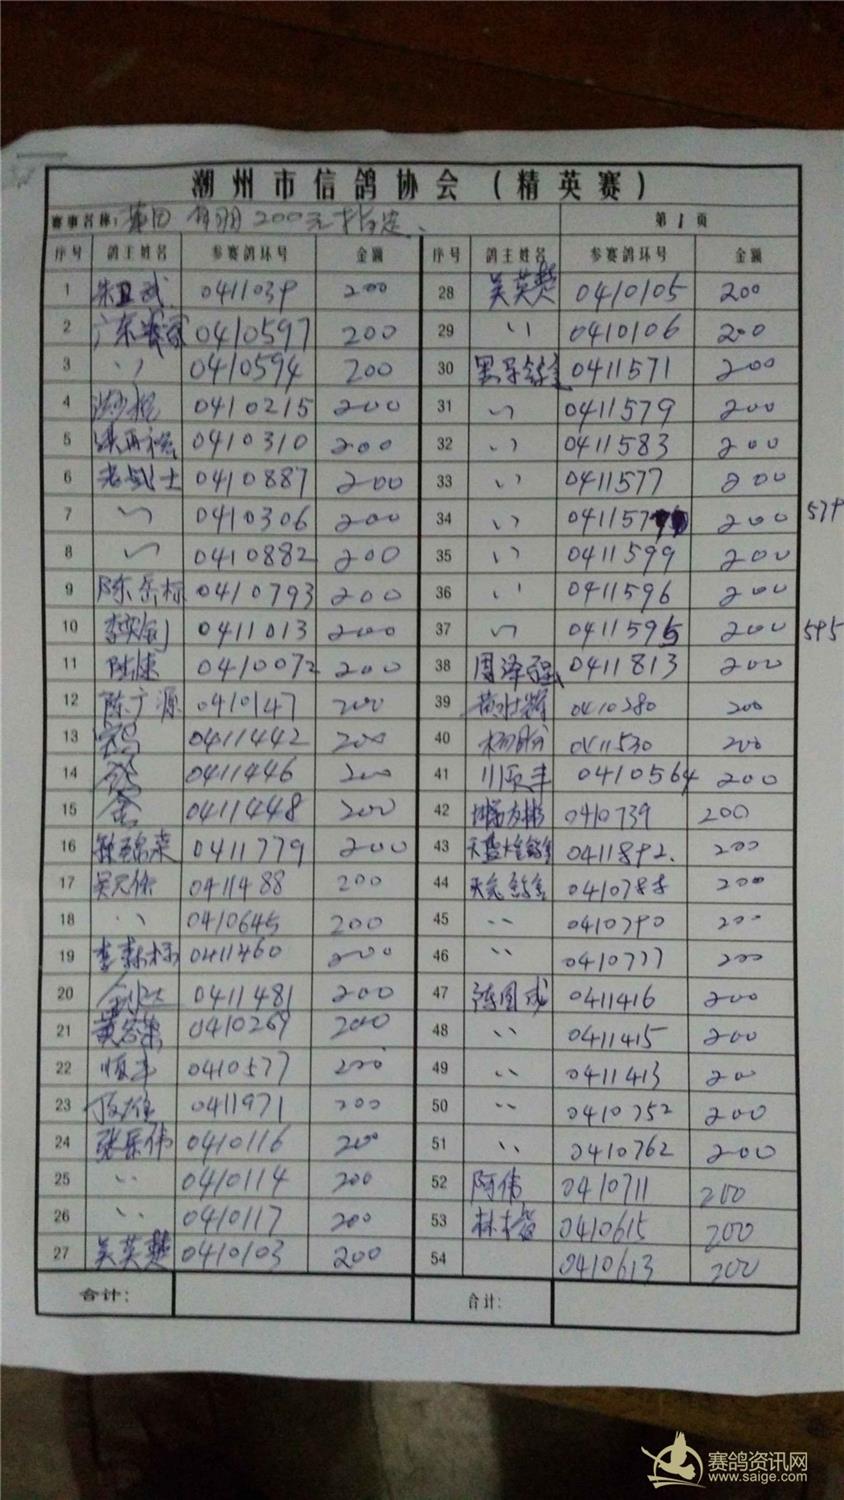 潮州市信鸽协会（精英赛）
赛事名称: 200元指定 第1页
序号 鸽主姓名 参赛鸽环号 金额 序号 鸽主姓名 参赛鸽环号 金额
1 0411039 200 28 吴英楚 0410105 200
2 广东 0410597 200 29 〃 0410106 200
3 〃 0410594 200 30 0411571 200
4 0410215 200 31 〃 0411579 200
5 0410310 200 32 〃 0411583 200
6 老战士 0410887 200 33 〃 0411577 200
7 〃 0410306 200 34 〃 200 579
8 〃 0410882 200 35 〃 0411599 200
9 陈岳标 0410793 200 36 〃 0411596 200
10 0411013 200 37 〃 0411595 200 595
11 0410072 200 38 周泽强 0411813 200
12 陈广源 0410147 200 39 0410280 200
13 0411442 200 40 0411530 200
14 0411446 200 41 川顺丰 0410564 200
15 0411448 200 42 0410739 200
16 0411779 200 43 0411892. 200
17 0411488 200 44 200
18 〃 0410645 200 45 〃 0410790 200
19 0411460 200 46 〃 0410777 200
20 0411481 200 47 0411416 200
21 0410269 200 48 〃 0411415 200
22 恒丰 0410577 200 49 〃 0411413 200
23 0411971 200 50 〃 0410752 200
24 张乐伟 0410116 200 51 〃 0410762 200
25 〃 0410114 200 52 阿伟 0410711 200
26 〃 0410117 200 53 0410615 200
27 吴英楚 0410103 200 54 0410613 200
合计: 合计:
赛鸽资讯网
www.saige.com